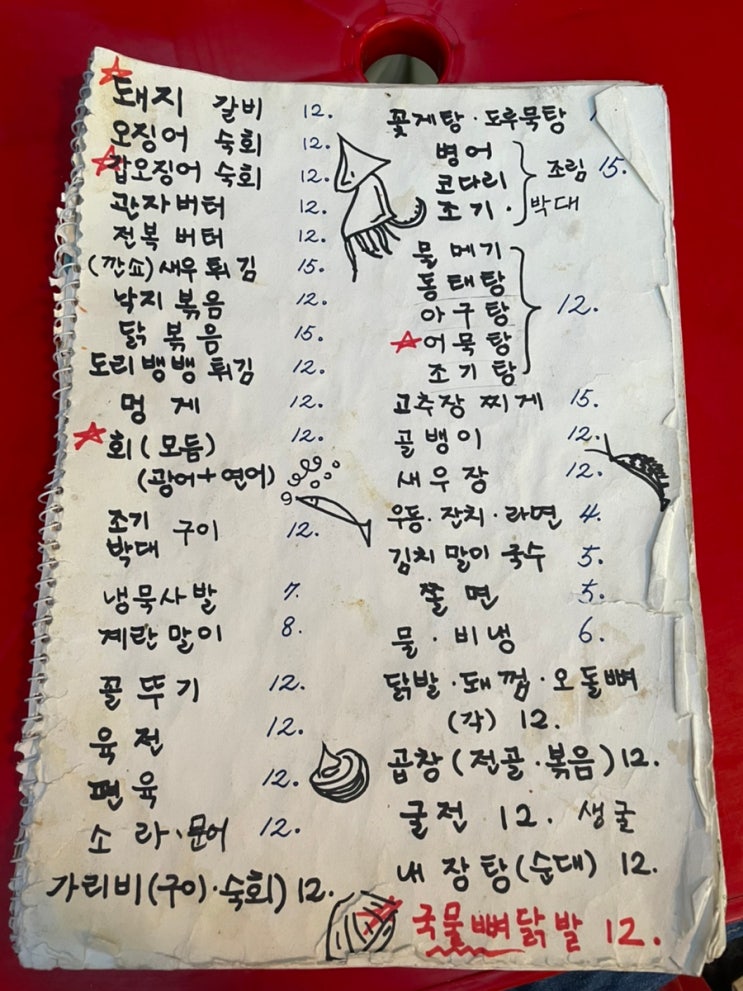 돼지 갈비 12.
오징어 숙회 12.
갑오징어 숙회 12.
관자버터 12.
전복 버터 12.
(깐쇼)새우 튀김 15.
낙지 볶음 12.
닭 볶음 15.
도리뱅뱅 튀김 12.
멍 게 12.
회(모듬) 12.
(광어+연어)
조기
박대 구이 12.
냉묵사발 7.
계란말이 8.
꼴뚜기 12.
육전 12.
편육 12.
소라·문어 12.
가리비(구이·숙회) 12.
꽃게탕·도루묵탕
병어
코다리 조림 15.
조기·박대
물메기
동태탕
아구탕 12.
어묵탕
조기탕
고추장 찌게 15.
골뱅이 12.
새우장 12.
우동·잔치·라면 4.
김치말이 국수 5.
쫄면 5.
물·비냉 6.
닭발·돼껍·오돌뼈
(각) 12.
곱창(전골·볶음) 12.
굴전 12. 생굴
내장탕(순대) 12.
국물뼈닭발 12.